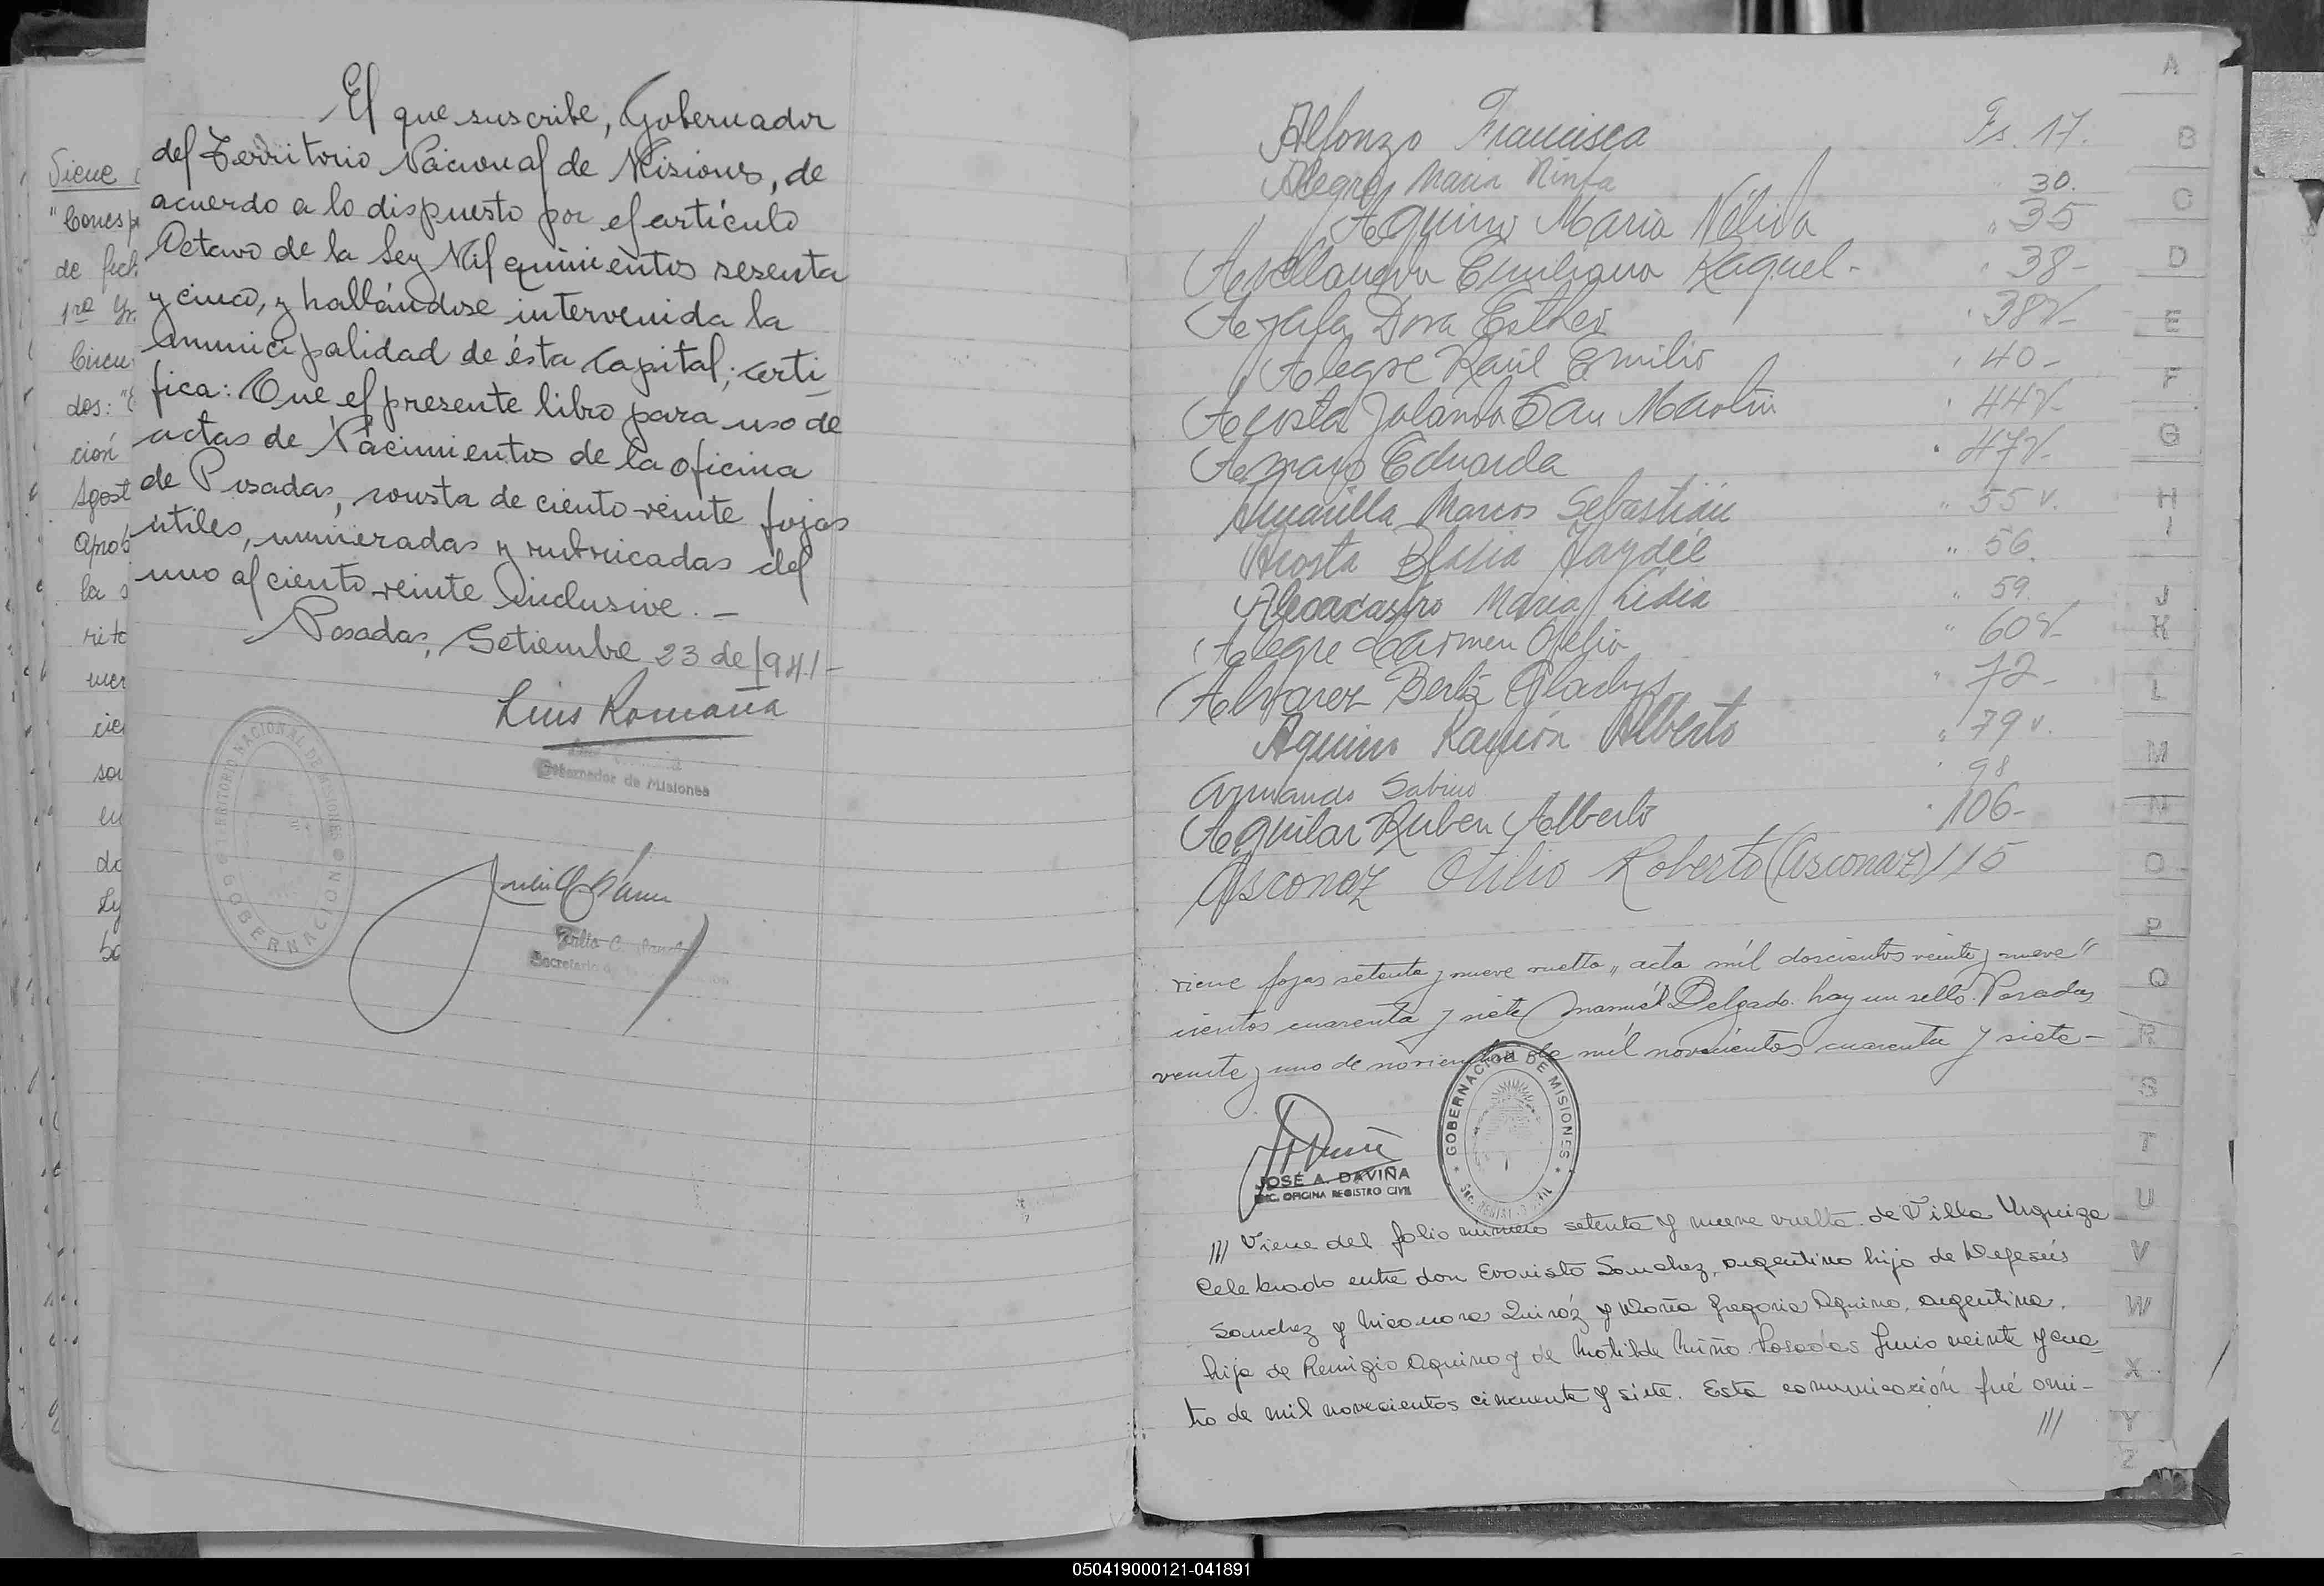 El que suscribe, Gobernador
del Territorio Nacional de Misiones, de
acuerdo a lo dispuesto por el artículo
Octavo de la Ley Mil quinientos sesenta
y cinco, y hallándose intervenida la
municipalidad de ésta Capital; certi_
fica: Que el presente libro para uso de
actas de Nacimientos de la oficina
de Posadas, consta de ciento veinte fojas
utiles, numeradas y rubricadas del
uno al ciento veinte inclusive. _
Posadas, Setiembre 23 de 1941-
Luis Romaña
Gobernador de Misiones
TERRITORIO NACIONAL DE MISIONES
GOBERNACION
Julio C.
Secretario
Viene
de fech
1ra
Circu
dos:
ción
Agost
Aprob
la
A
B
C
D
E
F
G
H
I
J
K
L
M
N
O
P
Q
R
S
T
U
V
W
X
Y
Z
Alfonzo Francisca Fs. 17.
Alegre Maria Ninfa " 30.
Aquino Maria Nélida " 35
Avellaneda Emiliana Raquel- " 38-
Ayala Dora Esther " 38v-
Alegre Raúl Emilio " 40-
Acosta Jolanda San Martin " 44v-
Amaro Eduarda " 47v-
Amarilla Marcos Sebastián " 55 v.
Acosta Blasia Haydée " 56.
Maria Lidia " 59.
Alegre Carmen Ofelia " 60v-
Alvarez Berta Gladys " 72-
Aquino Ramón Alberto " 79 v.
Sabino " 98
Aguilar Ruben Alberto " 106-
Asconaz Otilio Roberto (Asconaz) 115
viene fojas setenta y nueve vuelta "acta mil doscientos veinte y nueve"
cientos cuarenta y siete Manuel Delgado. hay un sello. Posadas
veinte y uno de noviembre de mil novecientos cuarenta y siete-
GOBERNACION DE MISIONES
JOSÉ A. DAVIÑA
ENC. OFICINA REGISTRO CIVIL
/// Viene del folio número setenta y nueve vuelta. de Villa Urquiza
Celebrado entre don Evaristo Sanchez, argentino hijo de Dejesús
Sanchez y Nicanora Quiróz y Doña Gregoria Aquino, argentina,
hija de Remigio Aquino y de Matilde Miño. Posadas Junio veinte y cua_
tro de mil novecientos cincuenta y siete. Esta comunicación fué omi-
///
050419000121-041891